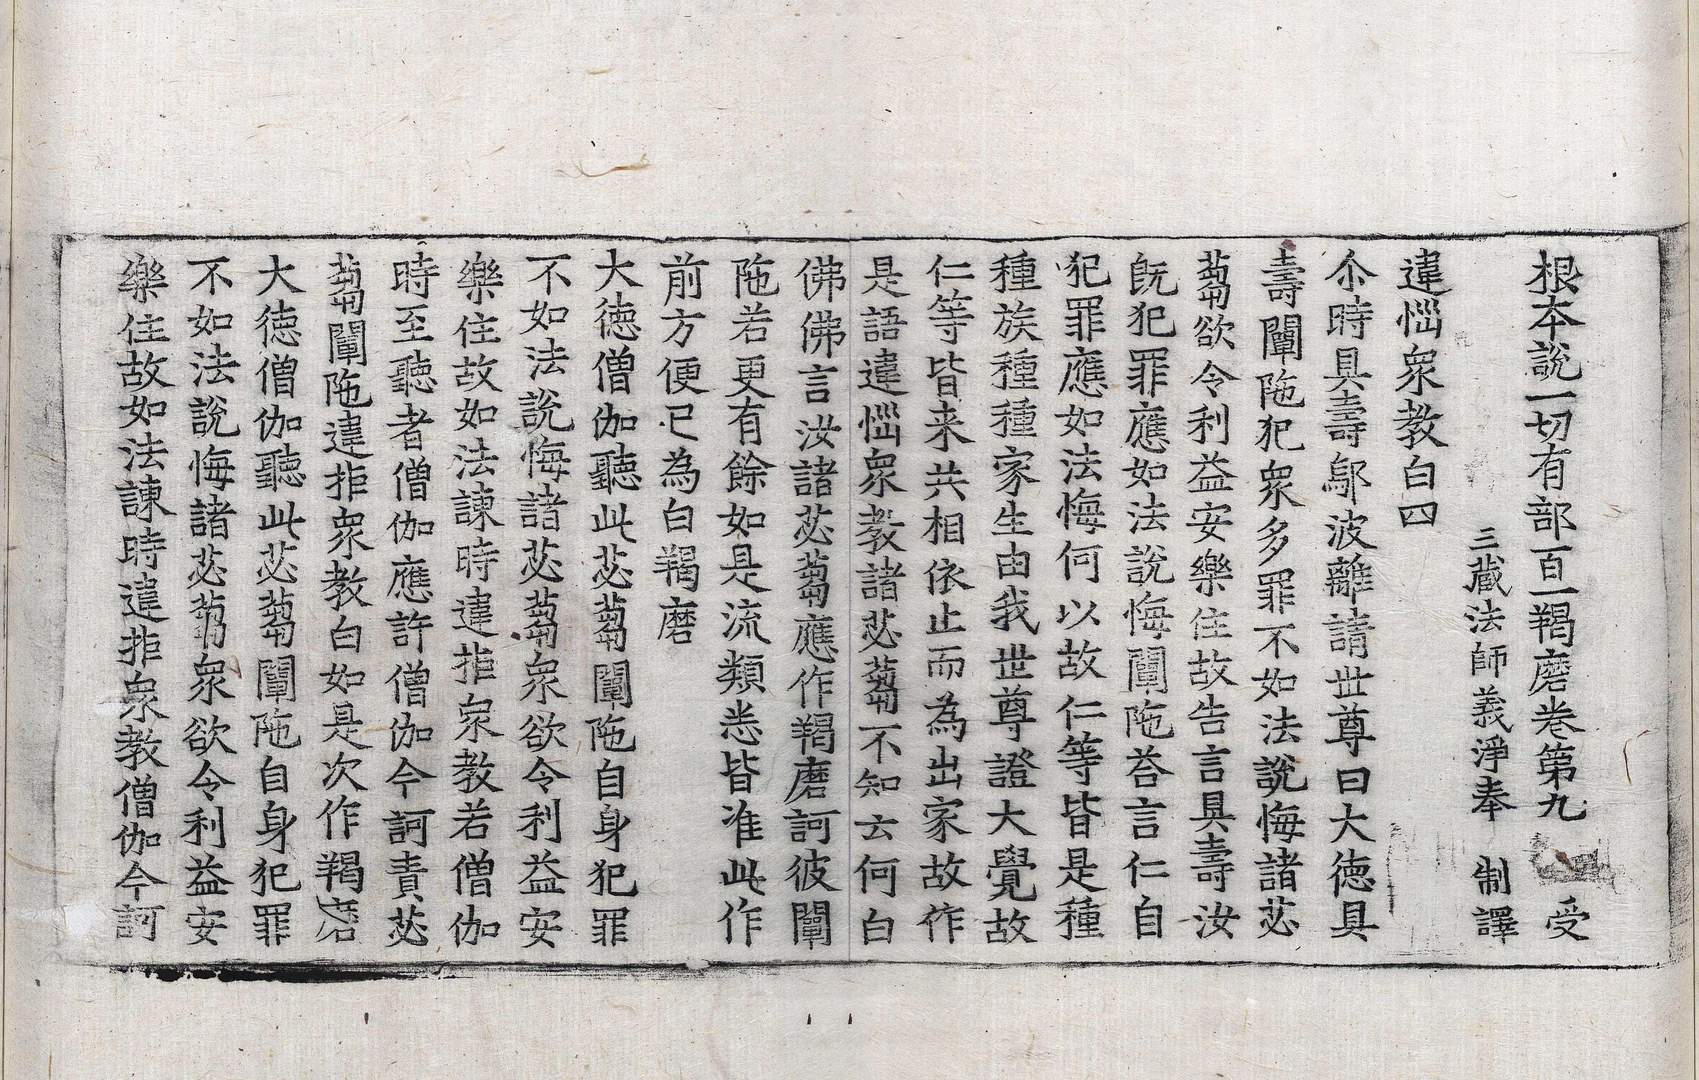 根本說一切有部百一羯磨卷第九　受
三藏法師義淨奉　制譯
違惱衆教白四
尒時具壽鄔波離請世尊曰大德具
壽闡陁犯衆多罪不如法說悔諸苾
蒭欲令利益安樂住故告言具壽汝
旣犯罪應如法說悔闡陁荅言仁自
犯罪應如法悔何以故仁等皆是種
種族種種家生由我世尊證大覺故
仁等皆来共相依止而為出家故作
是語違惱衆教諸苾蒭不知云何白
佛佛言汝諸苾蒭應作羯磨訶彼闡
陁若更有餘如是流類悉皆准此作
前方便已為白羯磨
大德僧伽聽此苾蒭闡陁自身犯罪
不如法說悔諸苾蒭衆欲令利益安
樂住故如法諫時違拒衆教若僧伽
時至聽者僧伽應許僧伽今訶責苾
蒭闡陁違拒衆教白如是次作羯磨
大德僧伽聽此苾蒭闡陁自身犯罪
不如法說悔諸苾蒭衆欲令利益安
樂住故如法諫時違拒衆教僧伽今訶